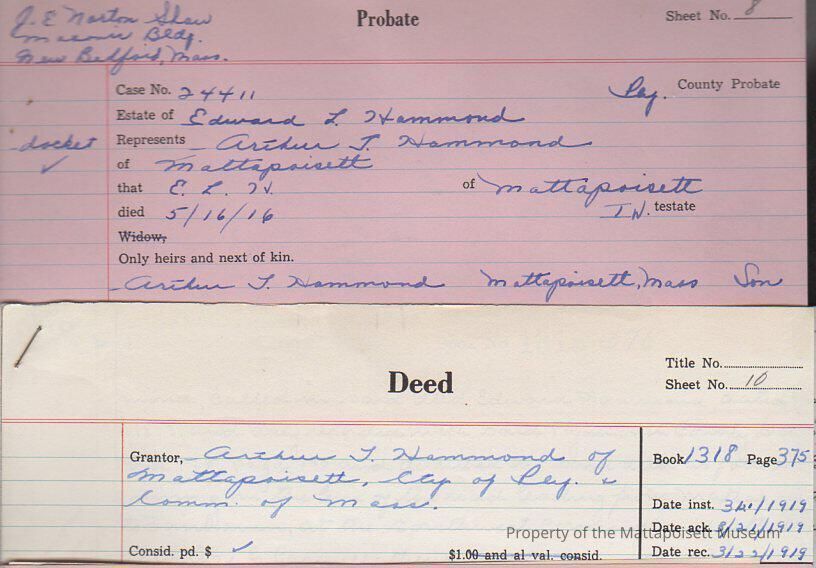 J. E Norton Shaw
Masonic Bldg.
New Bedford, Mass.
Probate
Sheet No. 8
Case No. 24411
Ply. County Probate
Estate of Edward L Hammond
docket ✓
Represents Arthur T. Hammond
of Mattapoisett
that E. L. H. of Mattapoisett
died 5/16/16 IN. testate
Widow,
Only heirs and next of kin.
Arthur T. Hammond Mattapoisett, Mass Son
Deed
Title No.
Sheet No. 10
Grantor, Arthur T. Hammond of
Mattapoisett, Cty of Ply. &
Comm. of Mass.
Consid. pd. $ ✓
$1.00 and al val. consid.
Book 1318 Page 375
Date inst. /1919
Date ack. /21/1919
Date rec. 3/22/1919
Property of the Mattapoisett Museum